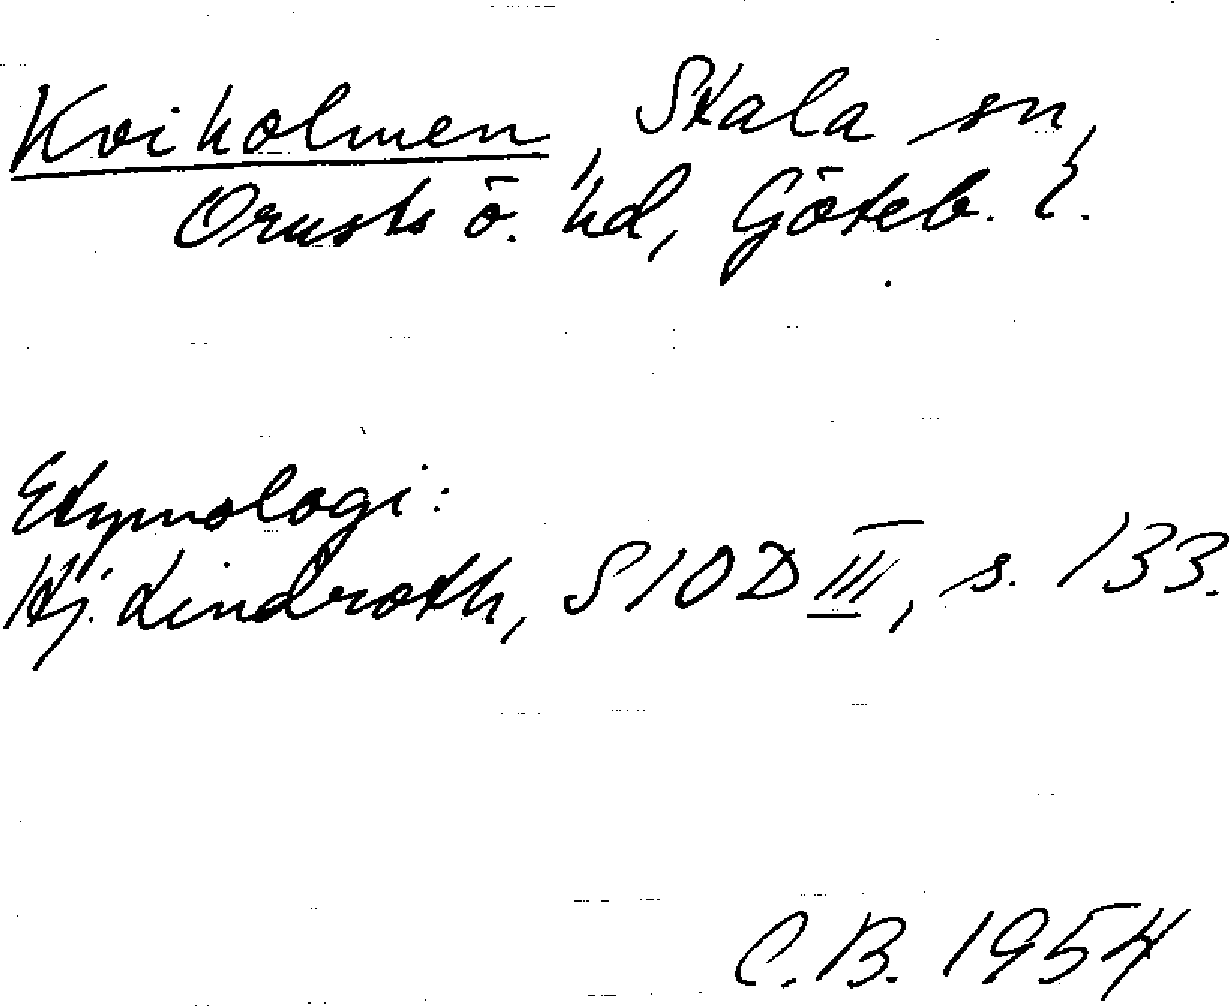 Kviholmen, Skala sn,
Orusts ö. hd, Göteb. l.
Etymologi:
Hj. Lindroth, SIOD III, s. 133.
C.B. 1954